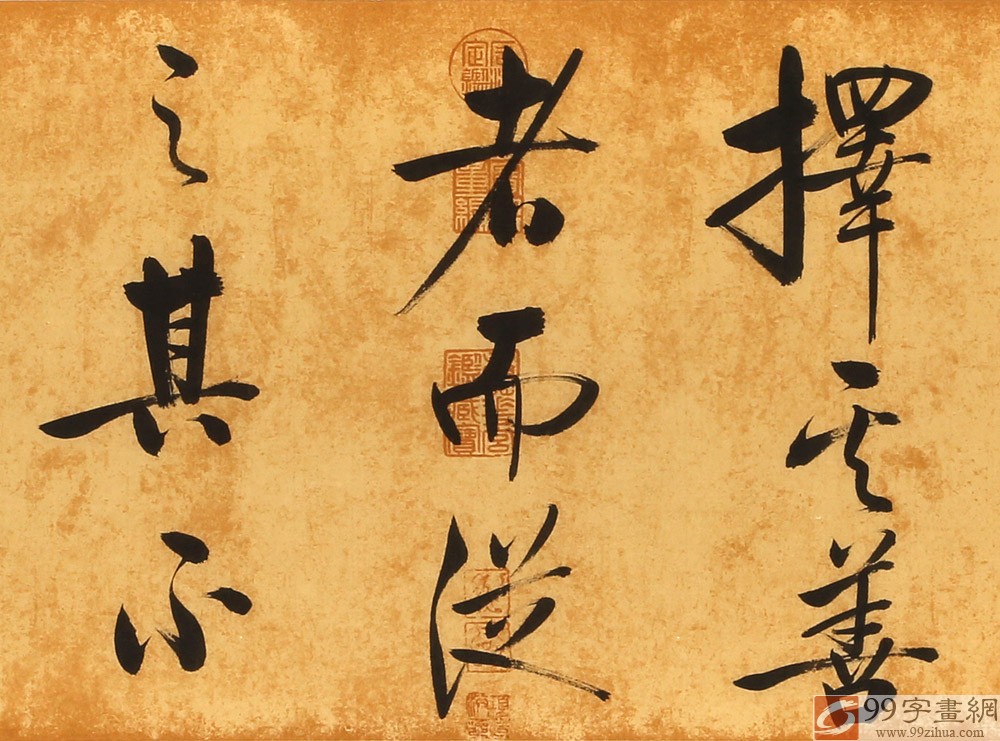 擇其善
者而從
之其不
99字畫網
www.99zihua.com